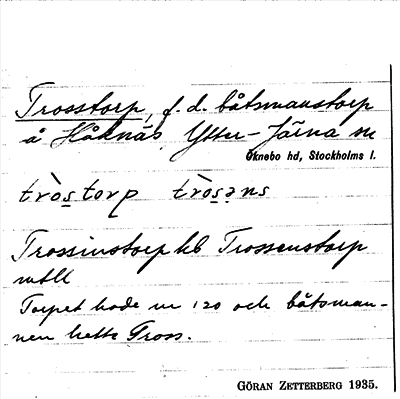 Trosstorp, f. d. båtsmanstorp
å Håknäs, Ytter-Järna sn
Öknebo hd, Stockholms l.
tròstorp tròsəns
Trossinstorp Trossenstorp
Torpet hade nr 120 och båtsman-
nen hette Tross.
GÖRAN ZETTERBERG 1935.